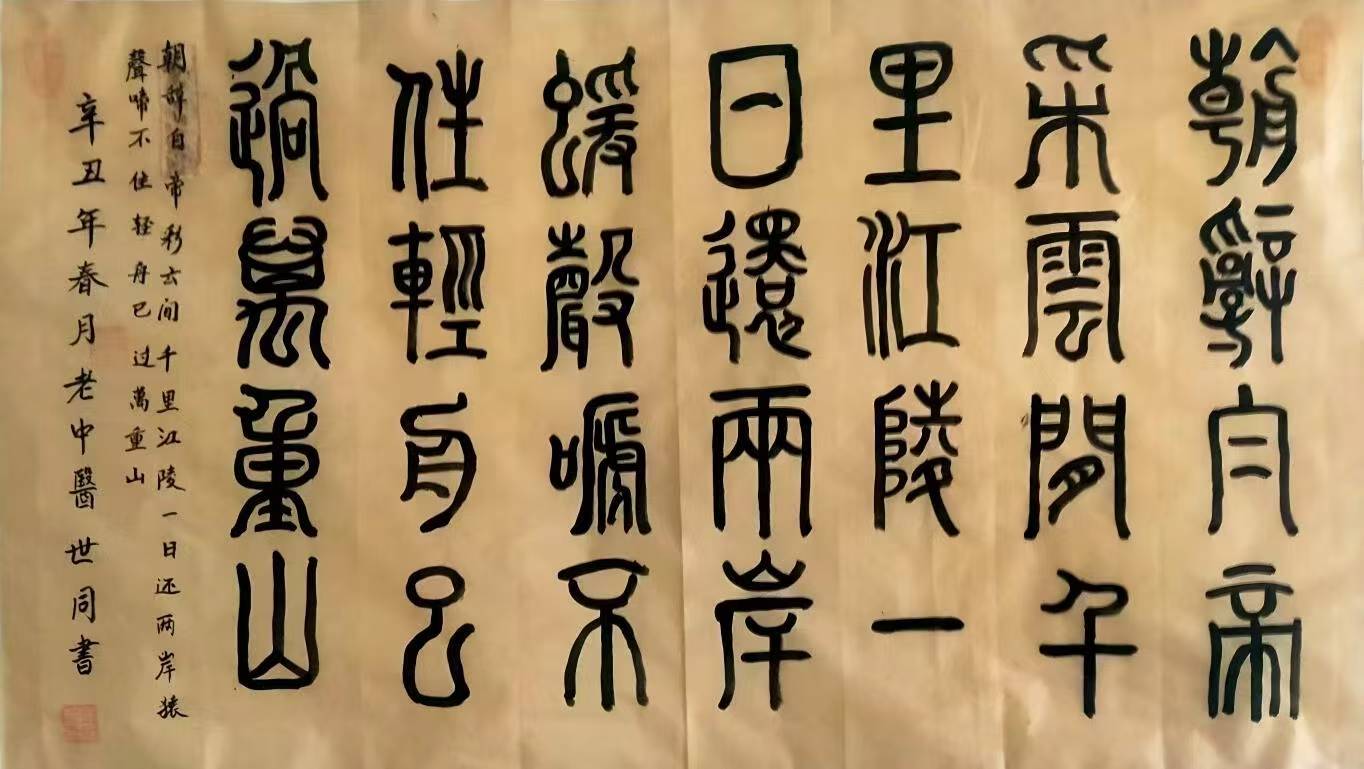 朝辭白帝
采雲間千
里江陵一
日還兩岸
蝯聲嗁不
住輕舟已
過萬重山
朝辞自帝彩云间千里江陵一日还两岸猿
聲啼不住轻舟已过萬重山
辛丑年春月老中醫世同書